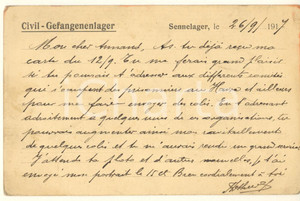 Civil - Gefangenenlager
Sennelager, le 26/9/1917
Mon cher Armand, As-tu déjà reçu ma
carte du 12/9. Tu me ferais grand plaisir
si tu pourrais t'adresser aux differents comités
qui s'occupent de prisonniers au Havre et d'ailleurs
pour me faire envoyer des colis. En t'adressant
adroitement à quelques unes de ces organisations, tu
pourrais augmenter ainsi mon ravitaillement
de quelques colis et tu m'auras rendu un grand service
J'attends ta photo et d'autres nouvelles, je t'ai
envoyé mon portrait le 15 ct. Bien cordialement à toi